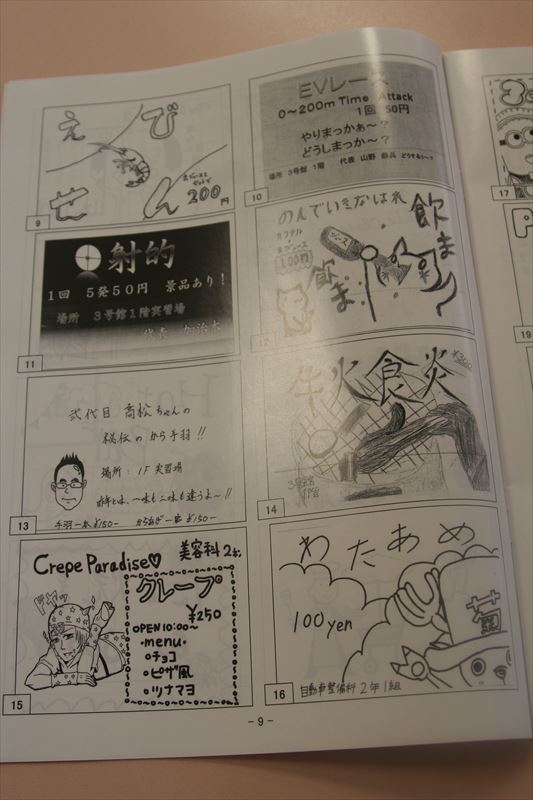 えび
せん
200円
9
EVレース
0～200m Time Attack
1回 50円
やりまっかぁ～?
どうしまっか～?
場所 3号館 1階 代表 山野
10
射的
1回 5発50円 景品あり!
場所 3号館1階実習場
代表 加治木
11
のんでいきなはれ
カクテル
ジュース
100円
飲ま
飲ま
12
弐代目 高松ちゃんの
秘伝のから手羽!!
場所:1F 実習場
昨年とは、一味も二味も違うよ～!!
手羽一本¥150- からあげ一串¥150-
13
牛火食炎
¥300
3号館
1階
14
Crepe Paradise♡
美容科2年
クレープ
¥250
OPEN 10:00～
・menu・
チョコ
ピザ風
ツナマヨ
15
わたあめ
100yen
自動車整備科 2年1組
16
17
19
-9-